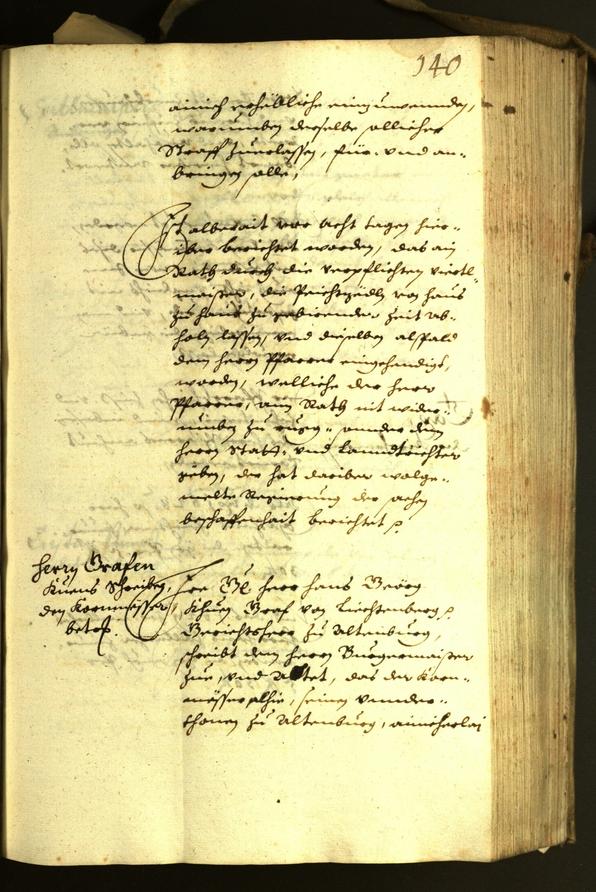 140
ainich erhöbliche einzuwennden,
warumben derselbe ollicher
Straff zuerlassen, für- und an-
bringen solle,
Ist alberait vor acht tagen hier-
iber berichtet worden, das ain
Rath durch die verpflichten viertl-
maister, die Peichtzedl von haus
zu haus zu gebirender zeit ab-
holn lassen, und dieselben alspald
dem herrn Pfarrer eingehendigt,
worden, welliche der herr
Pfarrer, aim Rath nit wider-
umben zu- sonnder dem
herrn Statt- und Lanndtrichter
geben, der hat dariber wolge-
melte Regierung der sachen
beschaffenhait berichtet
herrn Grafen
Kuens Schreiben,
den Kornmesser
betr.
Ire Ge herr hans Geörg
Khuen Graf von Liechtenberg
Gerichtsherr zu Altenburg,
schreibt dem herrn Burgermaister
zue, und das der Korn-
mösser alhie, seinen unnder-
thonen zu Altenburg, ainicherlai